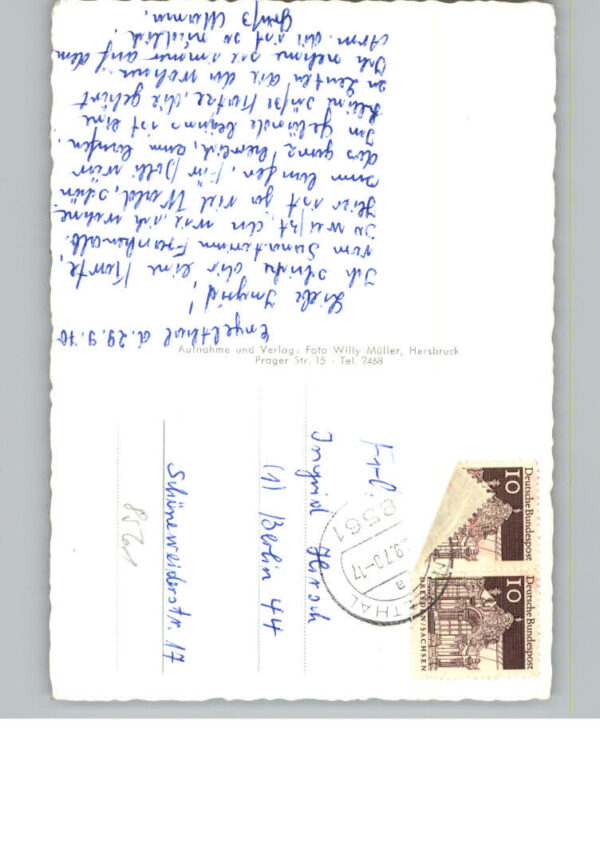 Engelthal d. 29.9.70
Liebe Ingrid!
Ich schicke dir eine Karte,
vom Sanatorium Frankenalb.
Du weißt, dann wie, ich wohne.
Hier ist ja viel Wald, schön
zum laufen. Für Dolli wär
das ganz herrlich, zum laufen.
Im Gelände begin ist eine
kleine süße Katze, die gehört
zu Leuten die da wohnen.
Ich nehme sie immer auf dem
Arm. die ist so niedlich!
Gruß Mama.
Aufnahme und Verlag: Foto Willy Müller, Hersbruck
Prager Str. 15 - Tel. 2468
Frl.
Ingrid
(1) Berlin 44
Schöneweiderstr. 17
8561
THAL
8561
9.70-17
a
10
Deutsche Bundespost
10
Deutsche Bundespost
DRESDEN/SACHSEN